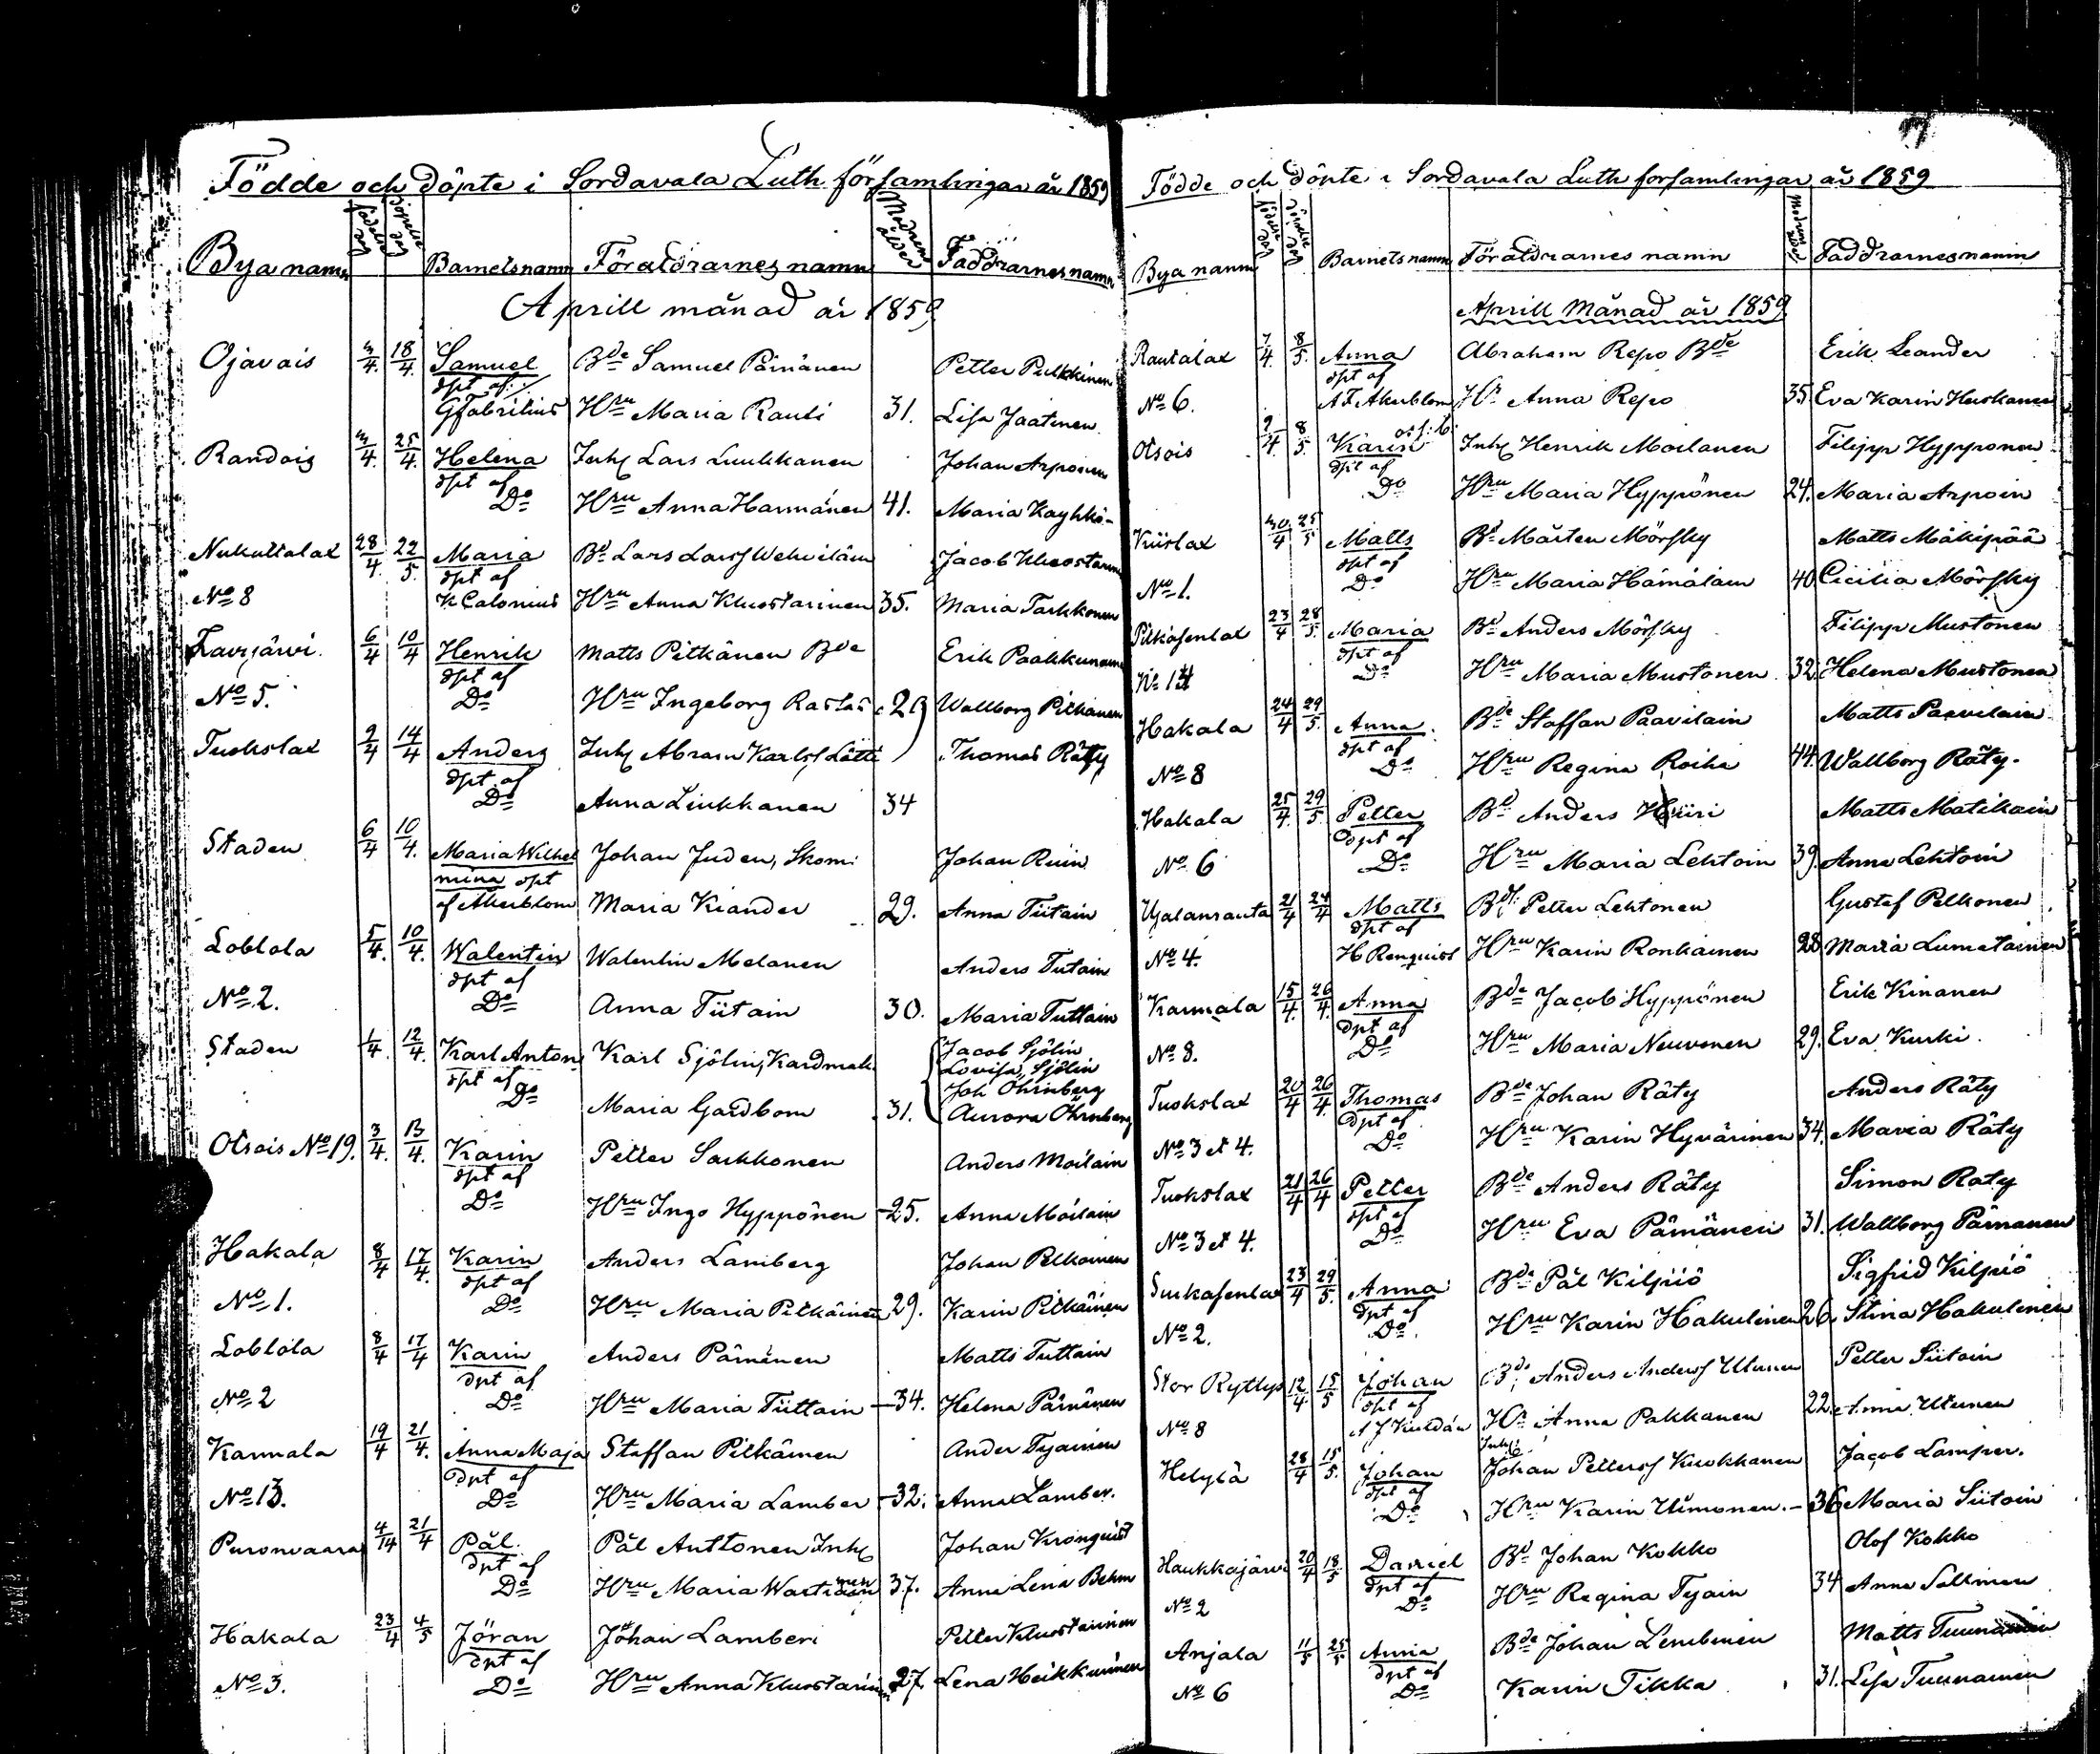 Födde och döpte i Sordavala Luth församlingar år 1859
Bya namn födelse dag döpelse dag Barnets namn Föräldrarnes namn Modrens ålder Faddrarnes namn
Aprill månad år 1859
Ojavais 3/4 18/4 Samuel Bde Samuel Päinänen Petter Pulkkinen
dpt af
G Fabritius Hru Maria Rauti 31. Lisa Jaatinen
Randois 3/4. 25/4. Helena Inhs Lars Luukkanen Johan Arponen
dpt af
Do Hru Anna Hannänen 41. Maria Kayhkö-
Nukuttalax 28/4 22/5. Maria Bd Lars Larsf Wehviläin Jacob
dpt af
No 8 K Calonius Hru Anna Kluostarinen 35. Maria Tarkkonen
6/4 10/4 Henrik Matts Pitkänen Bde Erik
dpt af
No 5. Do Hru Ingeborg 29 Wallborg Pitkänen
Tuokslax 9/4 14/4 Anders Inhs Abram Karlsf Lätti Thomas Räty
dpt af
Do Anna Linkkanen 34
Staden 6/4 10/4. Maria Wilhel Johan Juden, Skom: Johan Ruin
mina dpt
af Akerblom Maria Kiander 29. Anna Tiitain
Loblola 5/4. 10/4. Walentin Walentin Melanen Anders Tutain
dpt af
No 2. Do Anna Tiitain 30. Maria Tuttain
Staden 1/4. 12/4. Karl Anton Karl Sjölin, Kardmak. Jacob Sjölin
Lovisa Sjölin
dpt af Joh Öhrnberg
Do Maria Gardbom 31. Aurora Öhrnberg
Otsois No 19. 3/4. 13/4. Karin Petter Sarkkonen Anders Moilain
dpt af
Do Hru Inge Hyppönen 25. Anna Moilain
Hakala 8/4 17/4. Karin Anders Lamberg Johan Pelkonen
dpt af
No 1. Do Hru Maria Pitkäinen 29. Karin Pitkäinen
Loblola 8/4 17/4 Karin Anders Päinänen Matts Tuttain
dpt af
No 2 Do Hru Maria Tiittain 34. Helena Päinänen
Karmala 19/4 21/4. Anna Maja Staffan Pitkäinen Ander Tyainen
dpt af
No 13. Do Hru Maria Lamber 32. Anna Lamber.
Puronvaara 4/14 21/4 Pål Pål Anttonen Inhs Johan Kronquist
dpt af
Do Hru Maria 37. Anna Lena Behm
Hakala 23/4 4/5 Jöran Johan Lamberi Petter Kluostarinen
dpt af
No 3. Do Hru Anna Kluostarin 27. Lena Heikkurinen
Födde och döpte i Sordavala Luth forsamlingar år 1859
Bya namn födelse dag döpelse dag Barnets namn Föräldrarnes namn Modrens ålder Faddrarnes namn
Aprill Månad år 1859
Rautalax 7/4. 8/5. Anna Abraham Repo Bde Erik Leander
dpt af
No 6. A F Akerblom Hr Anna Repo 35. Eva Karin Huskanen
Otsois 9/4. 8/5. Karin Inhs Henrik Moilanen Filipp Hypponen
dpt af
Do Hru Maria Hyppönen 24. Maria Arpoin
Kiislax 30/4 25/5 Matts Bd Mårten Mörsky Matts Mäkipää
dpt af
No 1. Do Hru Maria Hämälain 40 Cicilia Mörsky
23/4 28/5. Maria Bd Anders Mörsky Filipp Mustonen
dpt af
No 14 Do Hru Maria Mustonen 32. Helena Mustonen
Hakala 24/4 29/5. Anna Bde Staffan Paavilain Matts Paavilain
dpt af
No 8 Do Hru Regina Roiha 44. Wallborg Räty.
Hakala 25/4. 29/5. Petter Bd Anders Hiiri Matts Matikain
dpt af
No 6 Do Hru Maria Lehtoin 39. Anna Lehtoin
21/4 24/4 Matts Bde Petter Lehtonen Gustaf Pelkonen
dpt af
No 4. H Renquist Hru Karin Ronkainen 28 Maria Lumetainen
Karmala 15/4. 26/4. Anna Bde Jacob Hyppönen Erik Kinanen
dpt af
No 8. Do Hru Maria Neuvonen 29. Eva Kurki.
Tuokslax 20/4 26/4. Thomas Bde Johan Räty Anders Räty
dpt af
No 3 et 4. Do Hru Karin Hyvärinen 34. Maria Räty
Tuokslax 21/4 26/4 Petter Bde Anders Räty Simon Räty
dpt af
No 3 et 4. Do Hru Eva Päinänen 31. Wallborg Päinanen
23/4 29/5. Anna Bde Pål Kilpiiö Sigfrid Kilpiö
dpt af
No 2. Do Hru Karin Hakulinen 26 Stina Hakulinen
Stor Rytty 12/4. 15/5 Johan Bde Anders Andersf Utunen Petter Siitoin
dpt af
No 8 Hr Anna Pakkanen 22. Anna Utunen
Inhs
Helylä 28/4 15/5. Johan Johan Pettersf Kuokkanen Jacob Lamper.
dpt af
Do Hru Karin 36 Maria Siitoin
Haukkajärvi 20/4 18/5 Daniel Bd Johan Kokko Olof Kokko
dpt af
No 2 Do Hru Regina Tyain 34 Anna Sallinen
Anjala 11/5 25/5 Anna Bde Johan Lembinen Matts
dpt af
No 6 Do Karin Tikka 31. Lisa Tuunainen